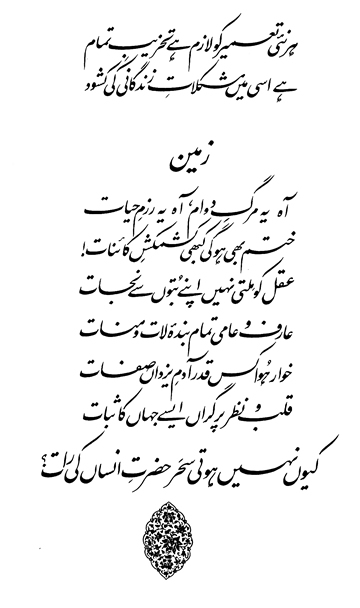 ہر نئی تعمیر کو لازم ہے تخریبِ تمام
ہے اسی میں مشکلاتِ زندگانی کی کشود
زمین
آہ یہ مرگِ دوام، آہ یہ رزمِ حیات
ختم بھی ہوگی کبھی کشمکشِ کائنات!
عقل کو ملتی نہیں اپنے بُتوں سے نجات
عارف و عامی تمام بندۂ لات و منات
خوار ہُوا کس قدر آدمِ یزداں صفات
قلب و نظر پر گراں ایسے جہاں کا ثبات
کیوں نہیں ہوتی سَحر حضرتِ انساں کی رات؟